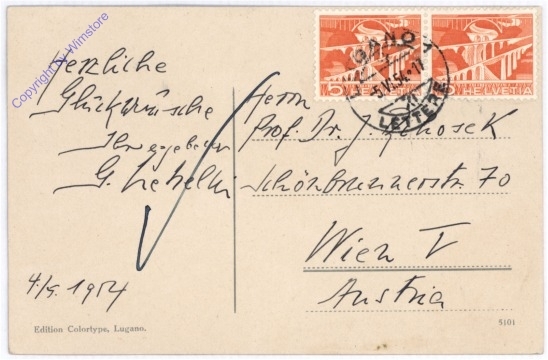 Copyright by Wimstore
Herzliche
Glückwünsche
Ihr ergebener
G.
4/5. 1954
Edition Colortype, Lugano.
5 HELVETIA
HELVETIA
LUGANO 1
5.V.54.-17
LETTERE
Herrn
Prof. Dr. J.
Schönbrunnerstr. 70
Wien V
Austria
5101